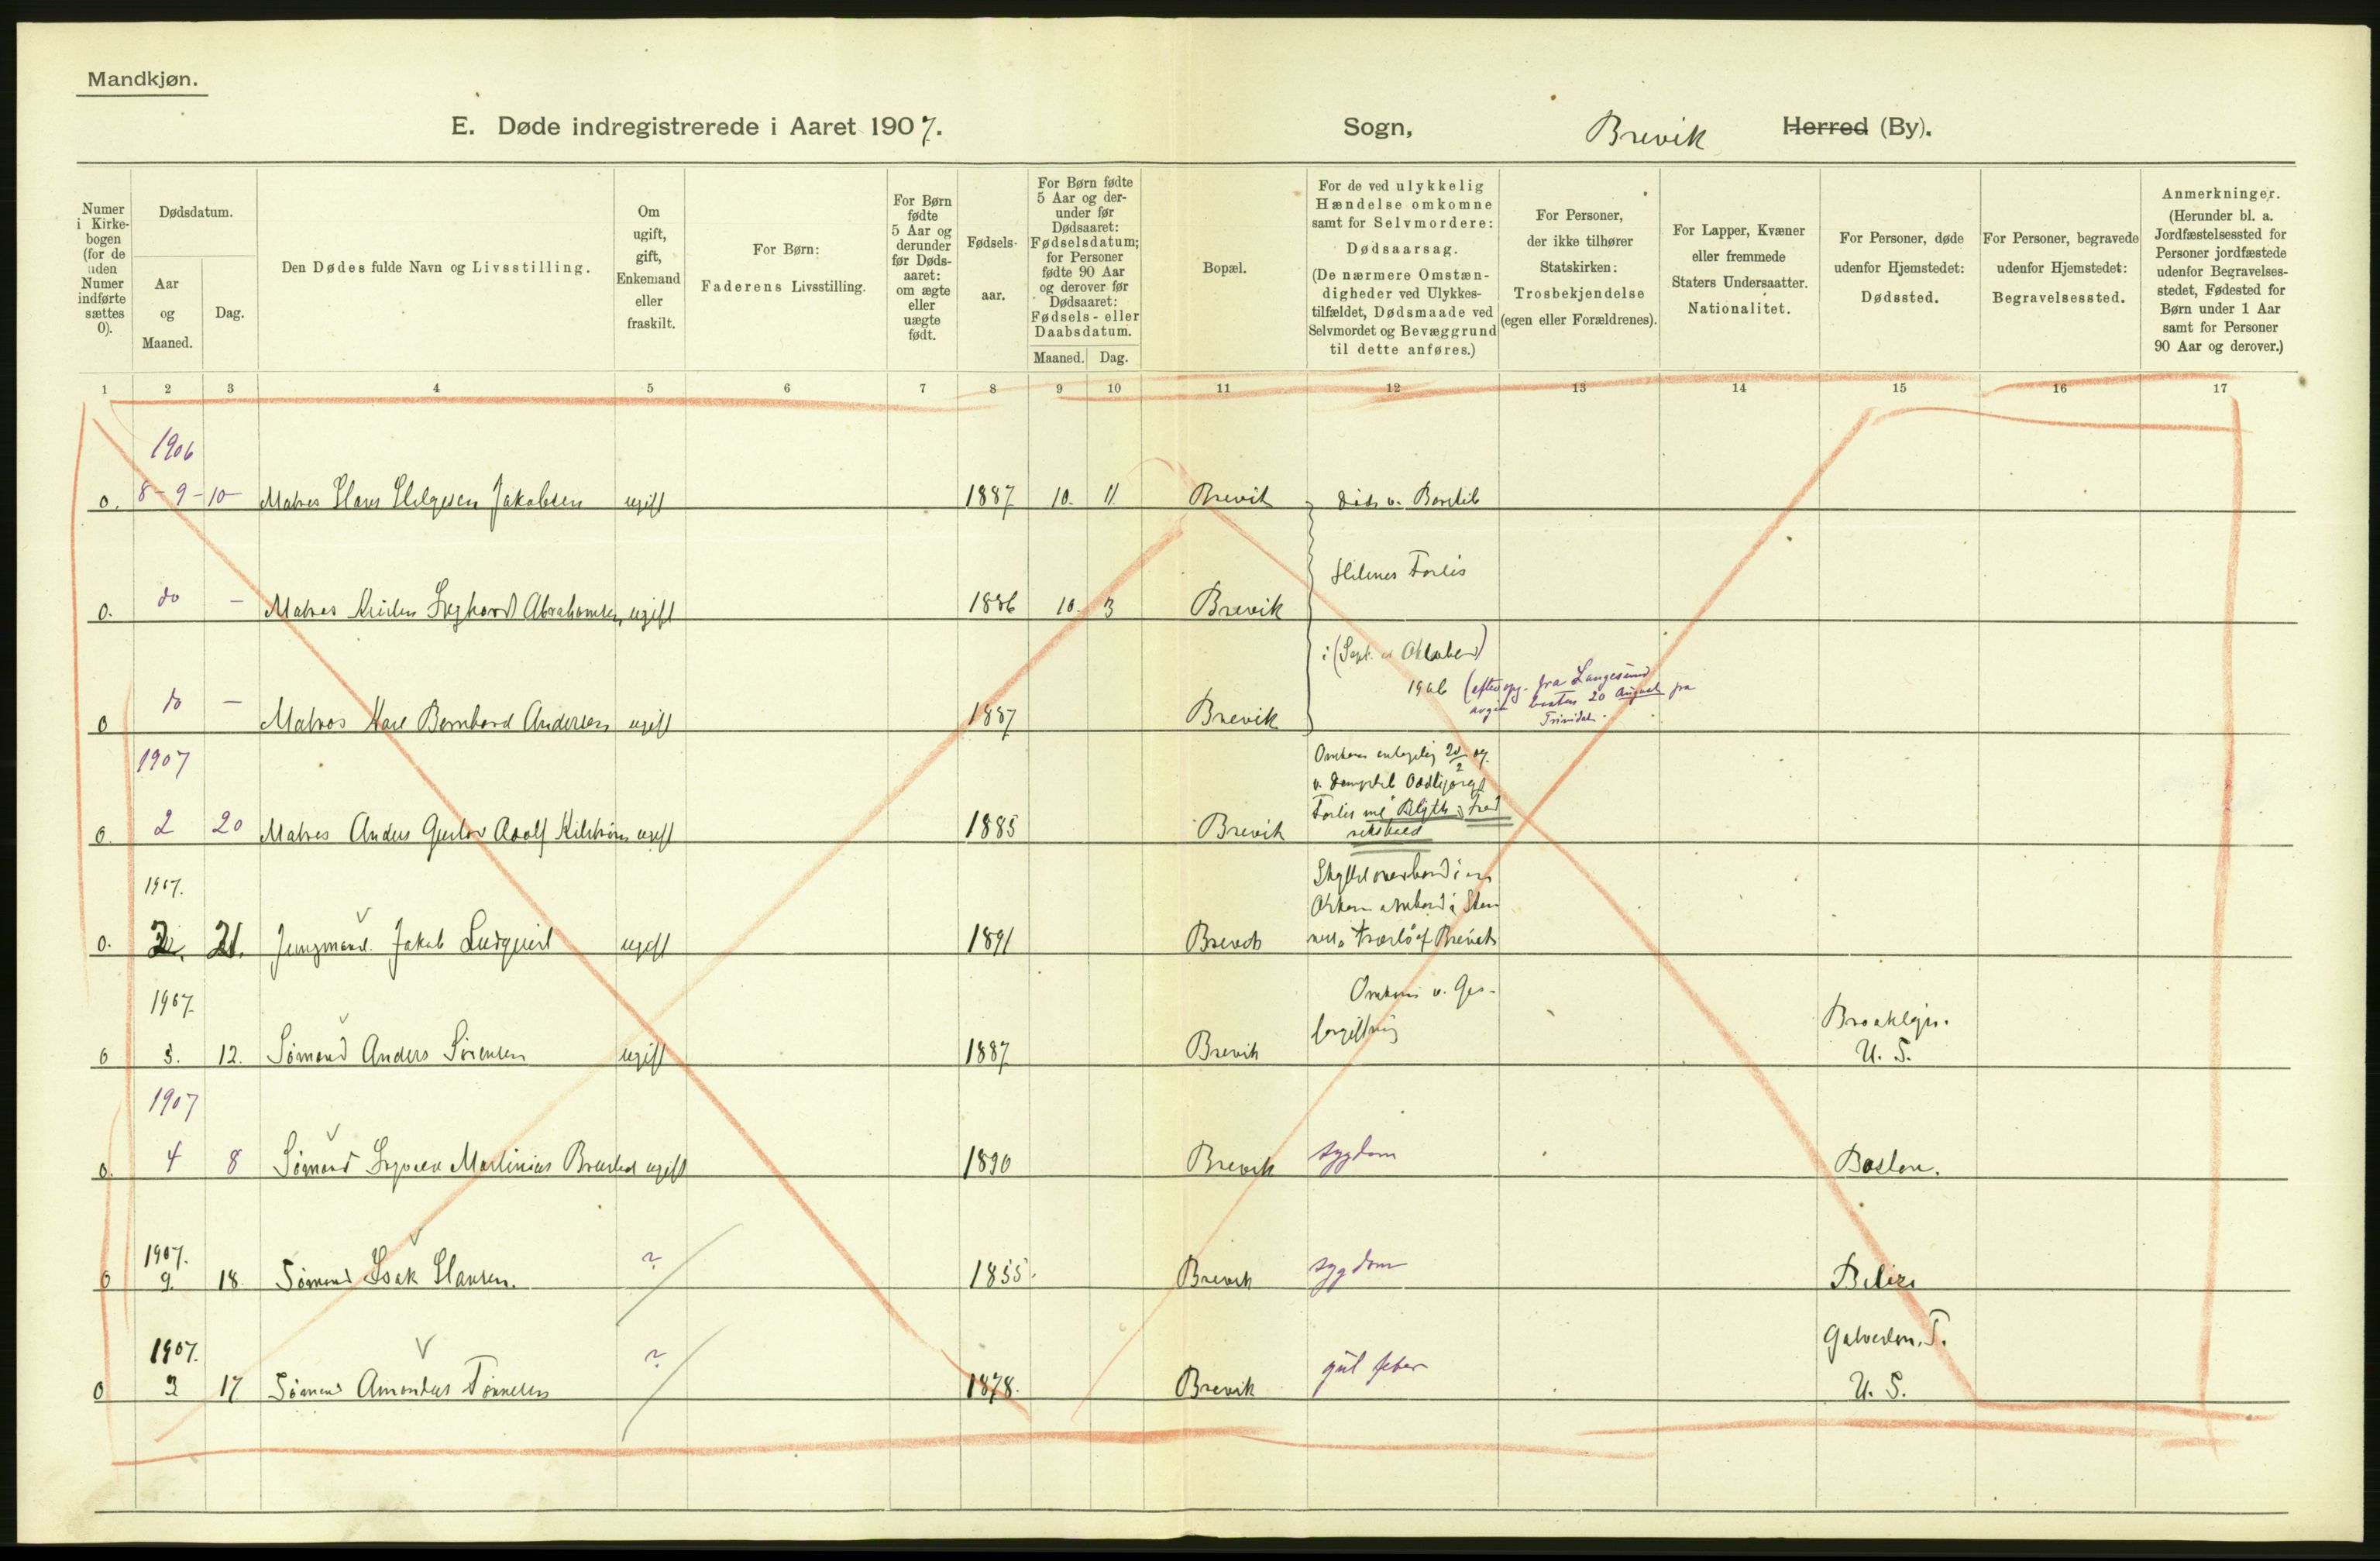 Mandkjøn.
E. Døde indregistrerede i Aaret 1907. Sogn, Brevik Herred (By).
Numer i Kirkebogen (for de uden Numer indførte sættes 0).
Dødsdatum.
Aar og Maaned.
Dag.
Den Dødes fulde Navn og Livsstilling.
Om ugift, gift, Enkemand eller fraskilt.
For Børn: Faderens Livsstilling.
For Børn fødte 5 Aar og derunder før Dødsaaret: om ægte eller uægte født.
Fødselsaar.
For Børn fødte 5 Aar og derunder før Dødsaaret: Fødselsdatum; for Personer fødte 90 Aar og derover før Dødsaaret: Fødsels- eller Daabsdatum.
Maaned. Dag.
Bopæl.
For de ved ulykkelig Hændelse omkomne samt for Selvmordere: Dødsaarsag. (De nærmere Omstændigheder ved Ulykkestilfældet, Dødsmaade ved Selvmordet og Bevæggrund til dette anføres.)
For Personer, der ikke tilhører Statskirken: Trosbekjendelse (egen eller Forældrenes).
For Lapper, Kvæner eller fremmede Staters Undersaatter. Nationalitet.
For Personer, døde udenfor Hjemstedet: Dødssted.
For Personer, begravede udenfor Hjemstedet: Begravelsessted.
Anmerkninger. (Herunder bl. a. Jordfæstelsessted for Personer jordfæstede udenfor Begravelsesstedet, Fødested for Børn under 1 Aar samt for Personer 90 Aar og derover.)
1 2 3 4 5 6 7 8 9 10 11 12 13 14 15 16 17
1906
0. 8-9-10- Matros Hans Helgesen Jakobsen ugift 1887 10. 11. Brevik Døds v. Barkik
Helenes Forlis
0. do - Matros Abrahamsen ugift 1886 10. 3 Brevik
i (Sept. el Oktober)
1906 (efter opg. fra Langesund
avgik 20 August fra
Trinidad.
0 do - Matros Karl Bernhard Andersen ugift 1887 Brevik
1907
Omkom 20/2 07.
v. Dampskib Oddbjørgs
Forlis ved Blyth
0. 2 20 Matros Anders Gustav Adolf ugift 1885 Brevik
1907.
Skyllet overbord i
0. 2. 21. Jungmand. Jakob Ludqvist ugift 1891 Brevik af Brevik
1907.
Omkom v. Gas- Brooklyn.
forgiftning
0 3. 12. Sømand Anders Sørensen ugift 1887 Brevik U. S.
1907
0. 4 8 Sømand Martinius ugift 1890 Brevik sygdom Boston.
1907.
0 9. 18. Sømand Isak Hansen. ? 1855. Brevik sygdom Belize
1907. Galveston. T.
0 3 17 Sømand Amandus Tønnesen ? 1878. Brevik gul feber U. S.